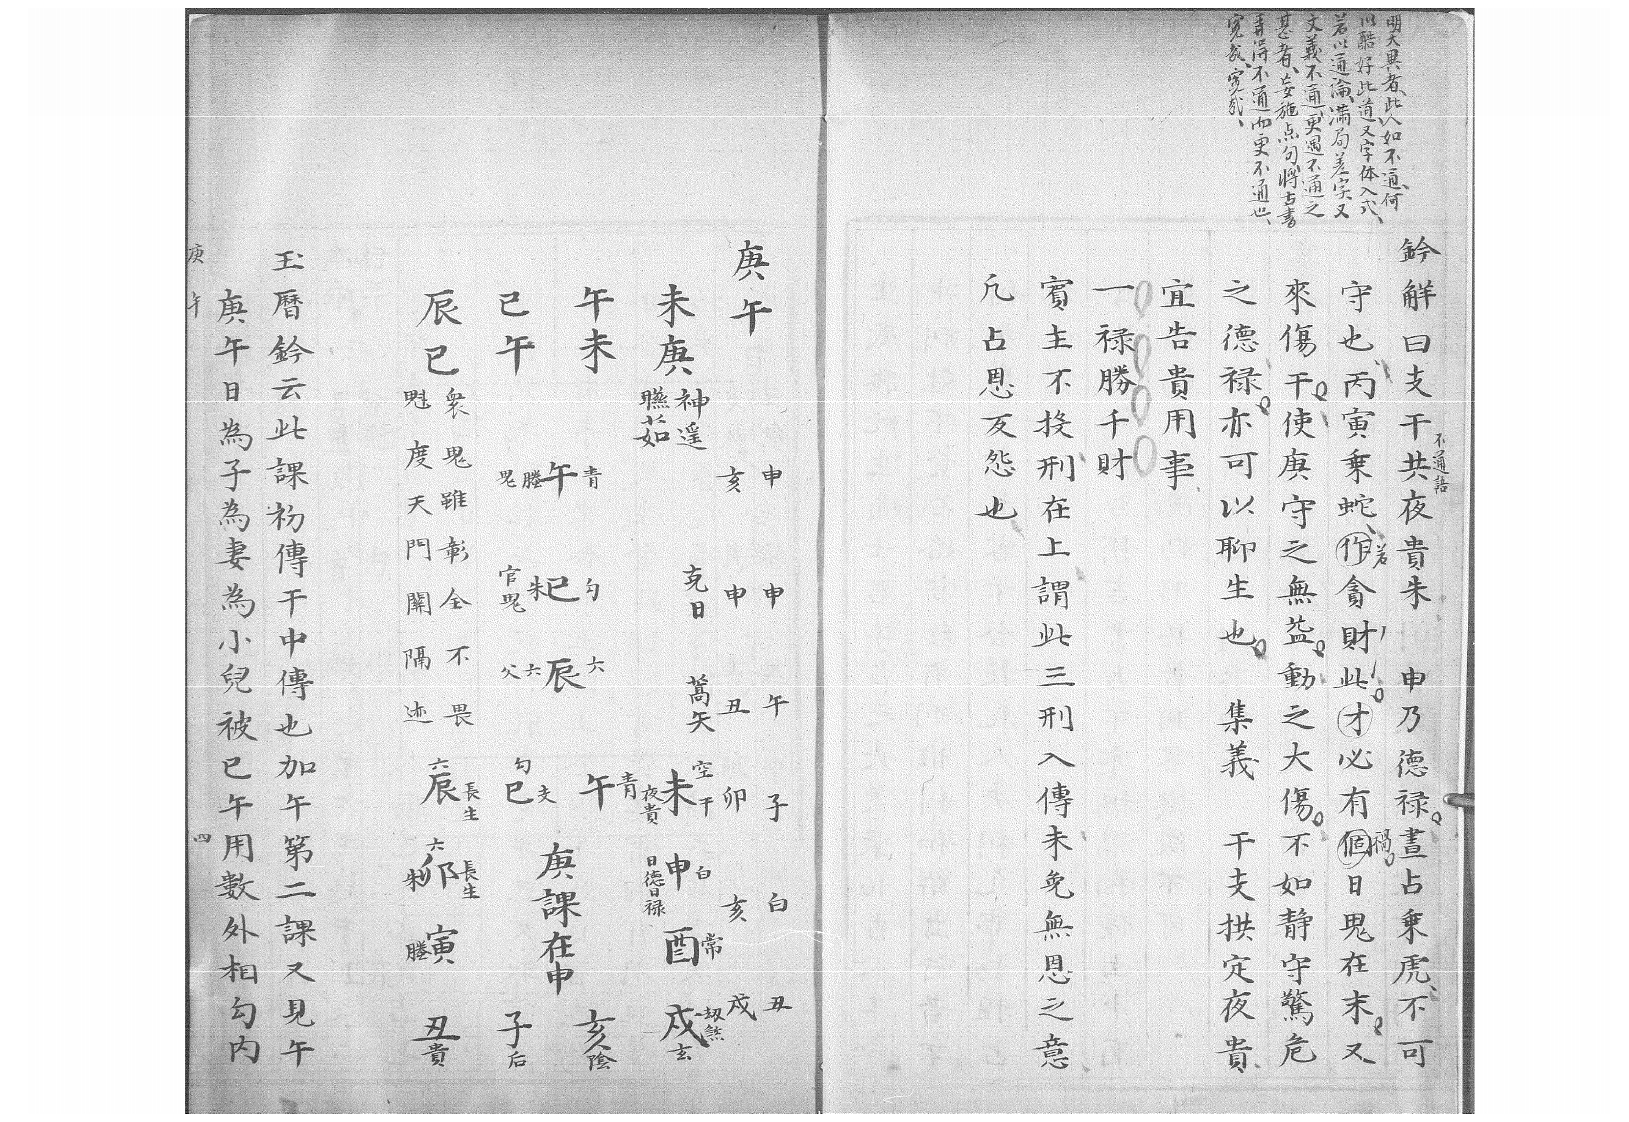 明天異者、此人如不通、何
以酷好此道又字体入式、
若以通論、滿局差字又
文義不通更遇不通之
甚者、妄施点句、將古書
弄得不通而更不通也、
冤哉、冤哉、
鈐解曰支干共夜貴朱 申乃德禄晝占乗虎不可
不通語
守也丙寅乗蛇作貪財此才必有個日鬼在末又
若
禍
來傷干使庚守之無益動之大傷不如静守驚危
之德禄亦可以聊生也 集義 干支拱定夜貴
宜告貴用事
一禄勝千財
賓主不投刑在上謂此三刑入傳未免無恩之意
凡占恩反怨也
庚午
未庚
午未
巳午
辰巳
神遥
曚茹
衆鬼雖彰全不畏
魁度天門關隔迹
申 申 午 子 白 丑
亥 申 丑 卯 亥 戌
克日 蒿矢
青午螣鬼
勾巳朱官鬼
六辰六父
空干未夜貴
青午
勾巳支
六辰長生
白申日德日禄
六卯朱長生
庚課在申
常酉
寅螣
劫煞戌玄
亥陰
子后
丑貴
玉曆鈐云此課初傳干中傳也加午第二課又見午
庚午日為子為妻為小兒被巳午用數外相勾内
庚午 四